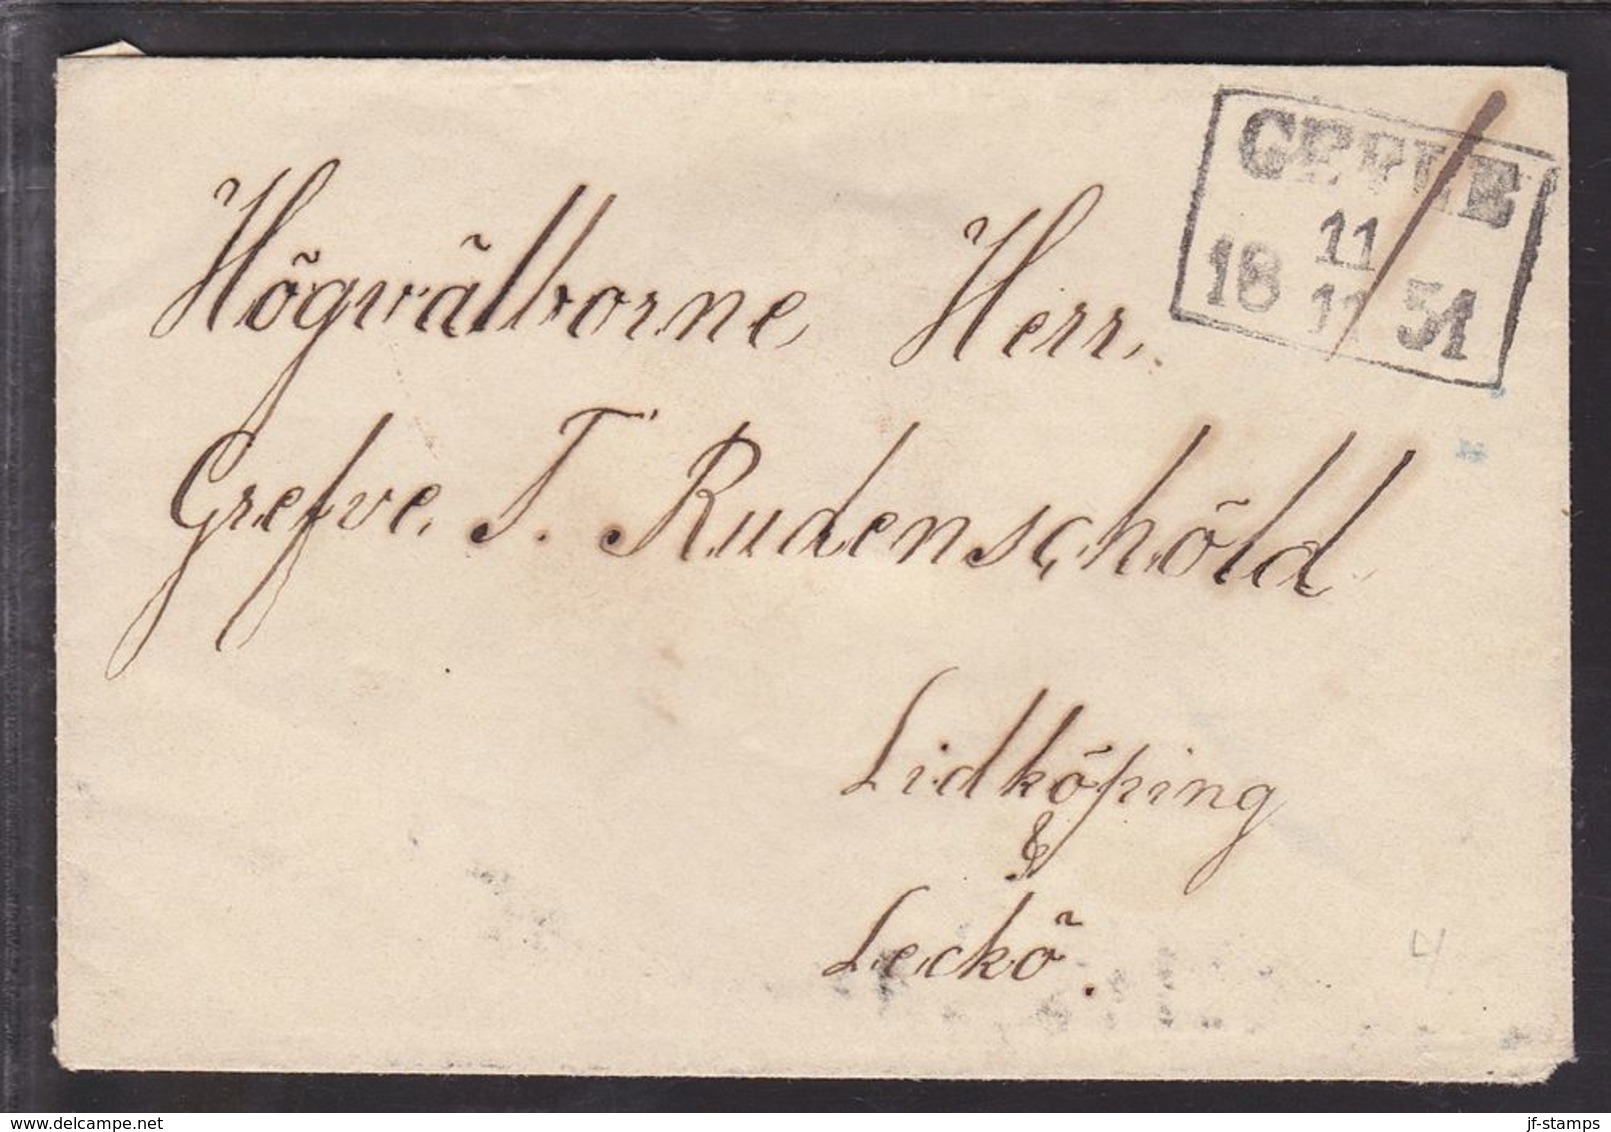 GEFLE
11
18 51
11
Högwälborne Herr,
Grefve. T. Rudenschöld
Lidköping
&
Leckö.
4
www.delcampe.net
jf-stamps